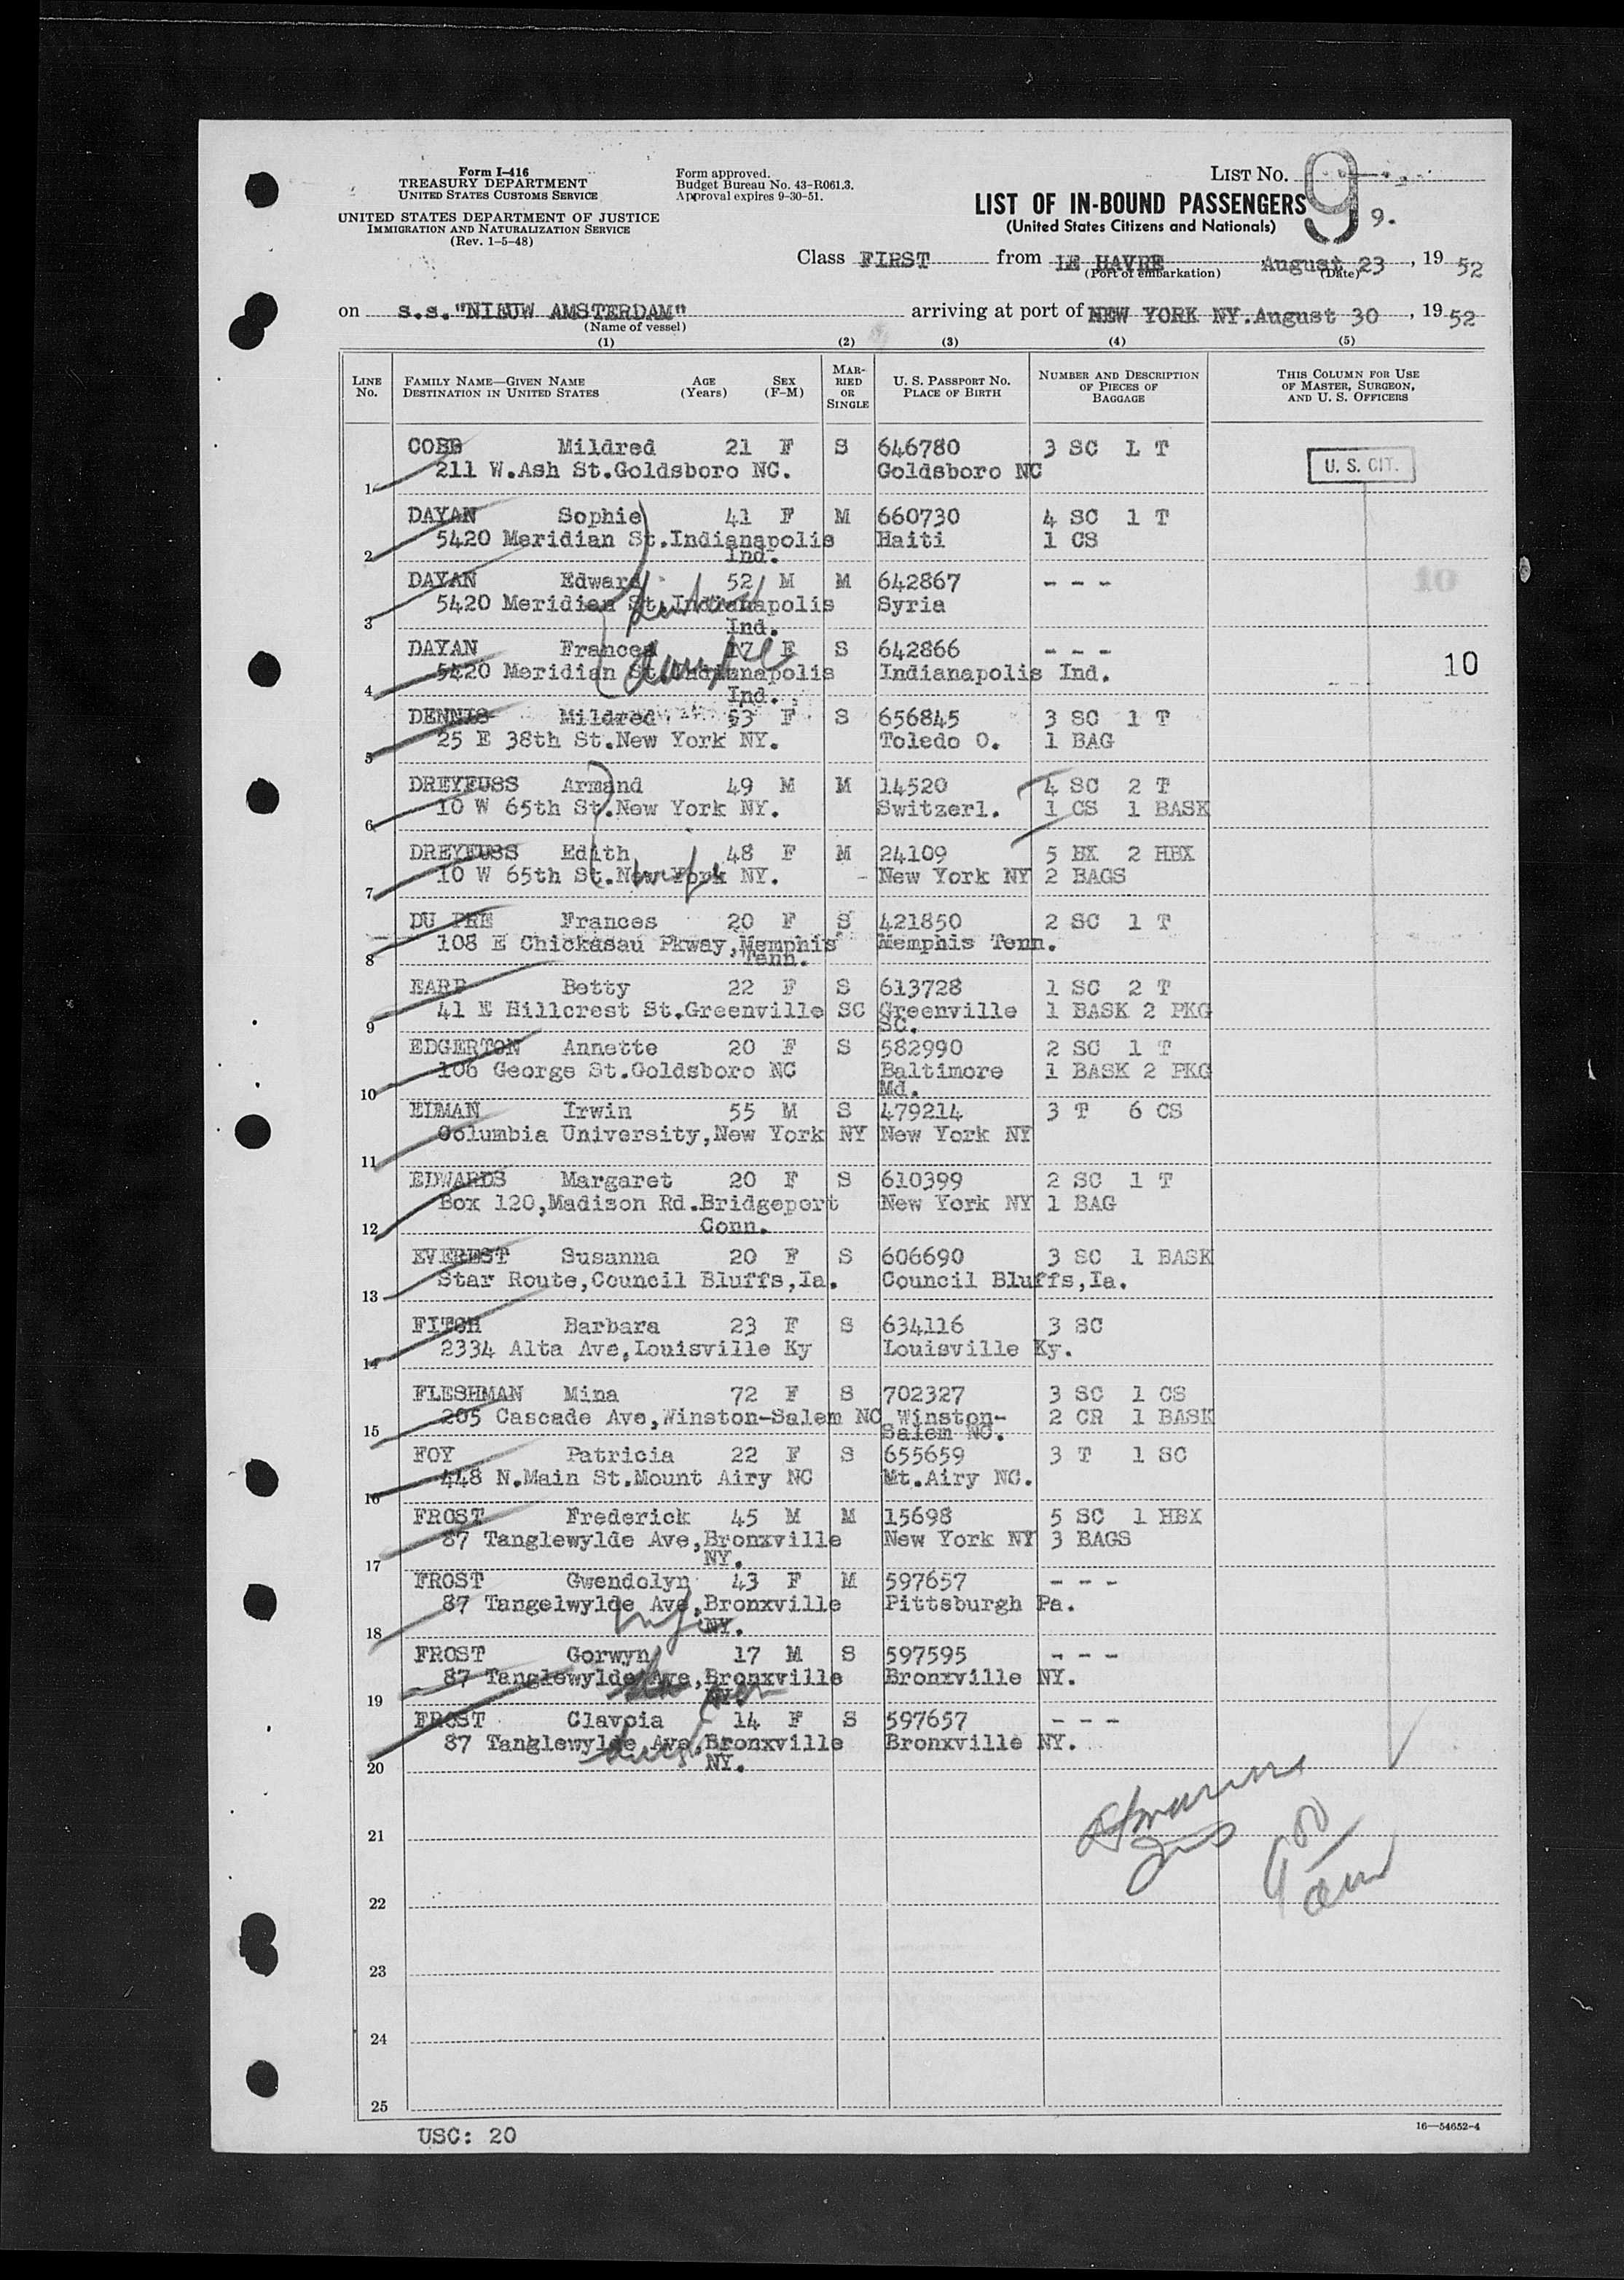 Form I-416
TREASURY DEPARTMENT
UNITED STATES CUSTOMS SERVICE
UNITED STATES DEPARTMENT OF JUSTICE
IMMIGRATION AND NATURALIZATION SERVICE
(Rev. 1-5-48)
Form approved.
Budget Bureau No. 43-R061.3.
Approval expires 9-30-51.
LIST No. 9
9.
LIST OF IN-BOUND PASSENGERS
(United States Citizens and Nationals)
Class FIRST from LE HAVRE August 23, 19 52
(Port of embarkation) (Date)
on s.s."NIEUW AMSTERDAM" arriving at port of NEW YORK NY.August 30, 19 52
(Name of vessel)
(1) (2) (3) (4) (5)
LINE No. FAMILY NAME—GIVEN NAME DESTINATION IN UNITED STATES AGE (Years) SEX (F-M) MARRIED OR SINGLE U. S. PASSPORT No. PLACE OF BIRTH NUMBER AND DESCRIPTION OF PIECES OF BAGGAGE THIS COLUMN FOR USE OF MASTER, SURGEON, AND U. S. OFFICERS
COBB Mildred 21 F S 646780 3 SC L T
U. S. CIT.
1 211 W.Ash St.Goldsboro NC. Goldsboro NC
DAYAN Sophie 41 F M 660730 4 SC 1 T
2 5420 Meridian St.Indianapolis Haiti 1 CS
Ind.
DAYAN Edward 52 M M 642867 - - -
10
3 5420 Meridian St.Indianapolis Syria
Ind.
husband
DAYAN Frances 17 F S 642866 - - -
4 5420 Meridian St.Indianapolis Indianapolis Ind. 10
Ind.
DENNIS Mildred 53 F S 656845 3 SC 1 T
5 25 E 38th St.New York NY. Toledo O. 1 BAG
DREYFUSS Armand 49 M M 14520 4 SC 2 T
6 10 W 65th St.New York NY. Switzerl. 1 CS 1 BASK
DREYFUSS Edith 48 F M 24109 5 BX 2 HBX
7 10 W 65th St.New York NY. New York NY 2 BAGS
wife
DU PRE Frances 20 F S 421850 2 SC 1 T
8 108 E Chickasau Pkway,Memphis Memphis Tenn.
Tenn.
EARP Betty 22 F S 613728 1 SC 2 T
9 41 E Hillcrest St.Greenville SC Greenville 1 BASK 2 PKG
SC.
EDGERTON Annette 20 F S 582990 2 SC 1 T
10 106 George St.Goldsboro NC Baltimore 1 BASK 2 PKG
Md.
EIMAN Irwin 55 M S 479214 3 T 6 CS
11 Columbia University,New York NY New York NY
EDWARDS Margaret 20 F S 610399 2 SC 1 T
12 Box 120,Madison Rd.Bridgeport New York NY 1 BAG
Conn.
EVEREST Susanna 20 F S 606690 3 SC 1 BASK
13 Star Route,Council Bluffs,Ia. Council Bluffs,Ia.
FITCH Barbara 23 F S 634116 3 SC
14 2334 Alta Ave,Louisville Ky Louisville Ky.
FLESHMAN Mina 72 F S 702327 3 SC 1 CS
15 205 Cascade Ave,Winston-Salem NC Winston- 2 CR 1 BASK
Salem NC.
FOY Patricia 22 F S 655659 3 T 1 SC
16 448 N.Main St.Mount Airy NC Mt.Airy NC.
FROST Frederick 45 M M 15698 5 SC 1 HBX
17 87 Tanglewylde Ave,Bronxville New York NY 3 BAGS
NY.
FROST Gwendolyn 43 F M 597657 - - -
18 87 Tangelwylde Ave,Bronxville Pittsburgh Pa.
NY.
wife
FROST Gorwyn 17 M S 597595 - - -
19 87 Tanglewylde Ave,Bronxville Bronxville NY.
NY.
FROST Clavoia 14 F S 597657 - - -
20 87 Tanglewylde Ave,Bronxville Bronxville NY.
NY.
21
22
23
24
25
USC: 20
16—54652-4